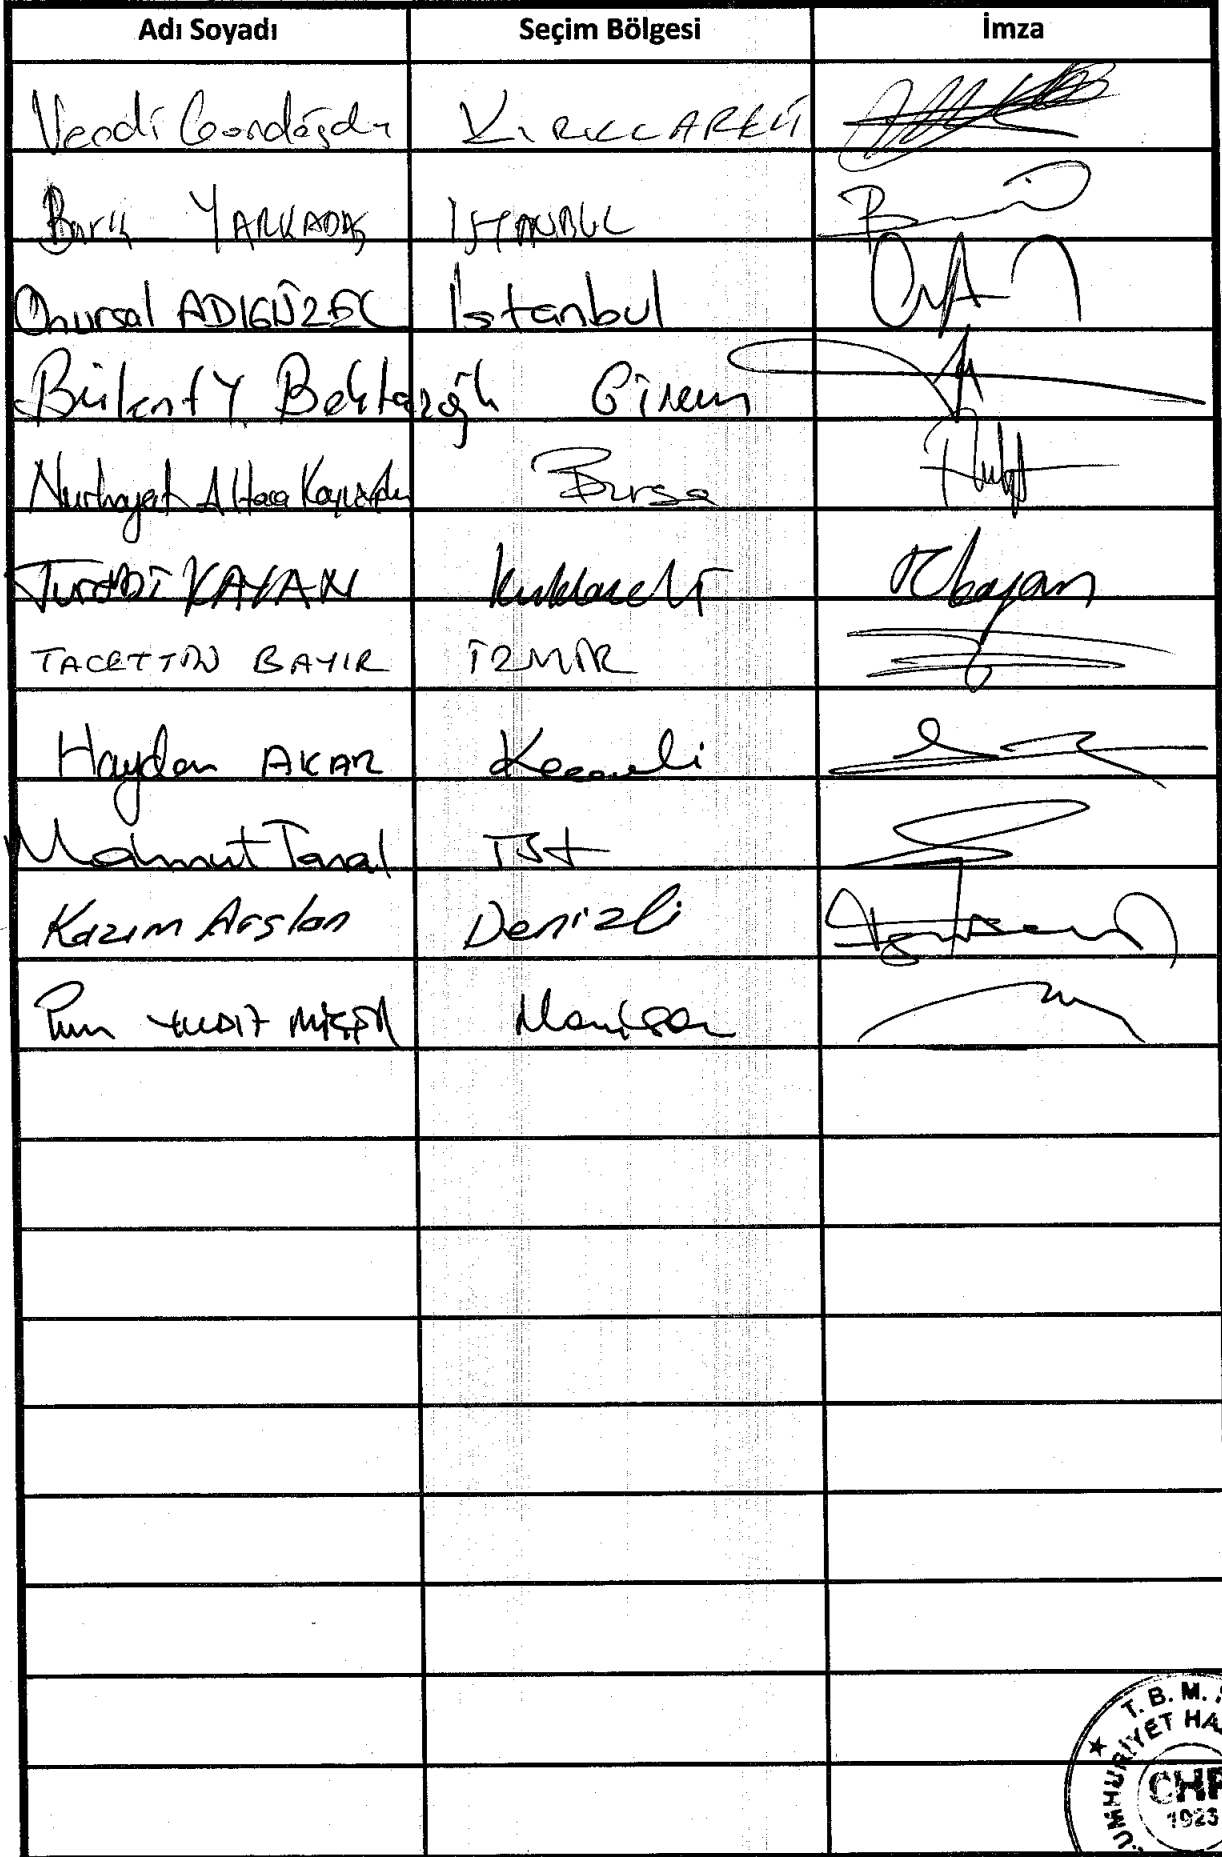 Adı Soyadı Seçim Bölgesi İmza
Vecdi Gündoğdu KIRKLARELİ
Barış YARKADAŞ İSTANBUL
Onursal ADIGÜZEL İstanbul
Bülent Y. Bektaşoğlu Giresun
Nurhayat Altaca Kayışoğlu Bursa
Turabi KAYAN Kırklareli
TACETTİN BAYIR İZMİR
Haydar AKAR Kocaeli
Mahmut Tanal İst
Kazım Arslan Denizli
Manisa
T. B. M.
CUMHURİYET HA
CHP
1923